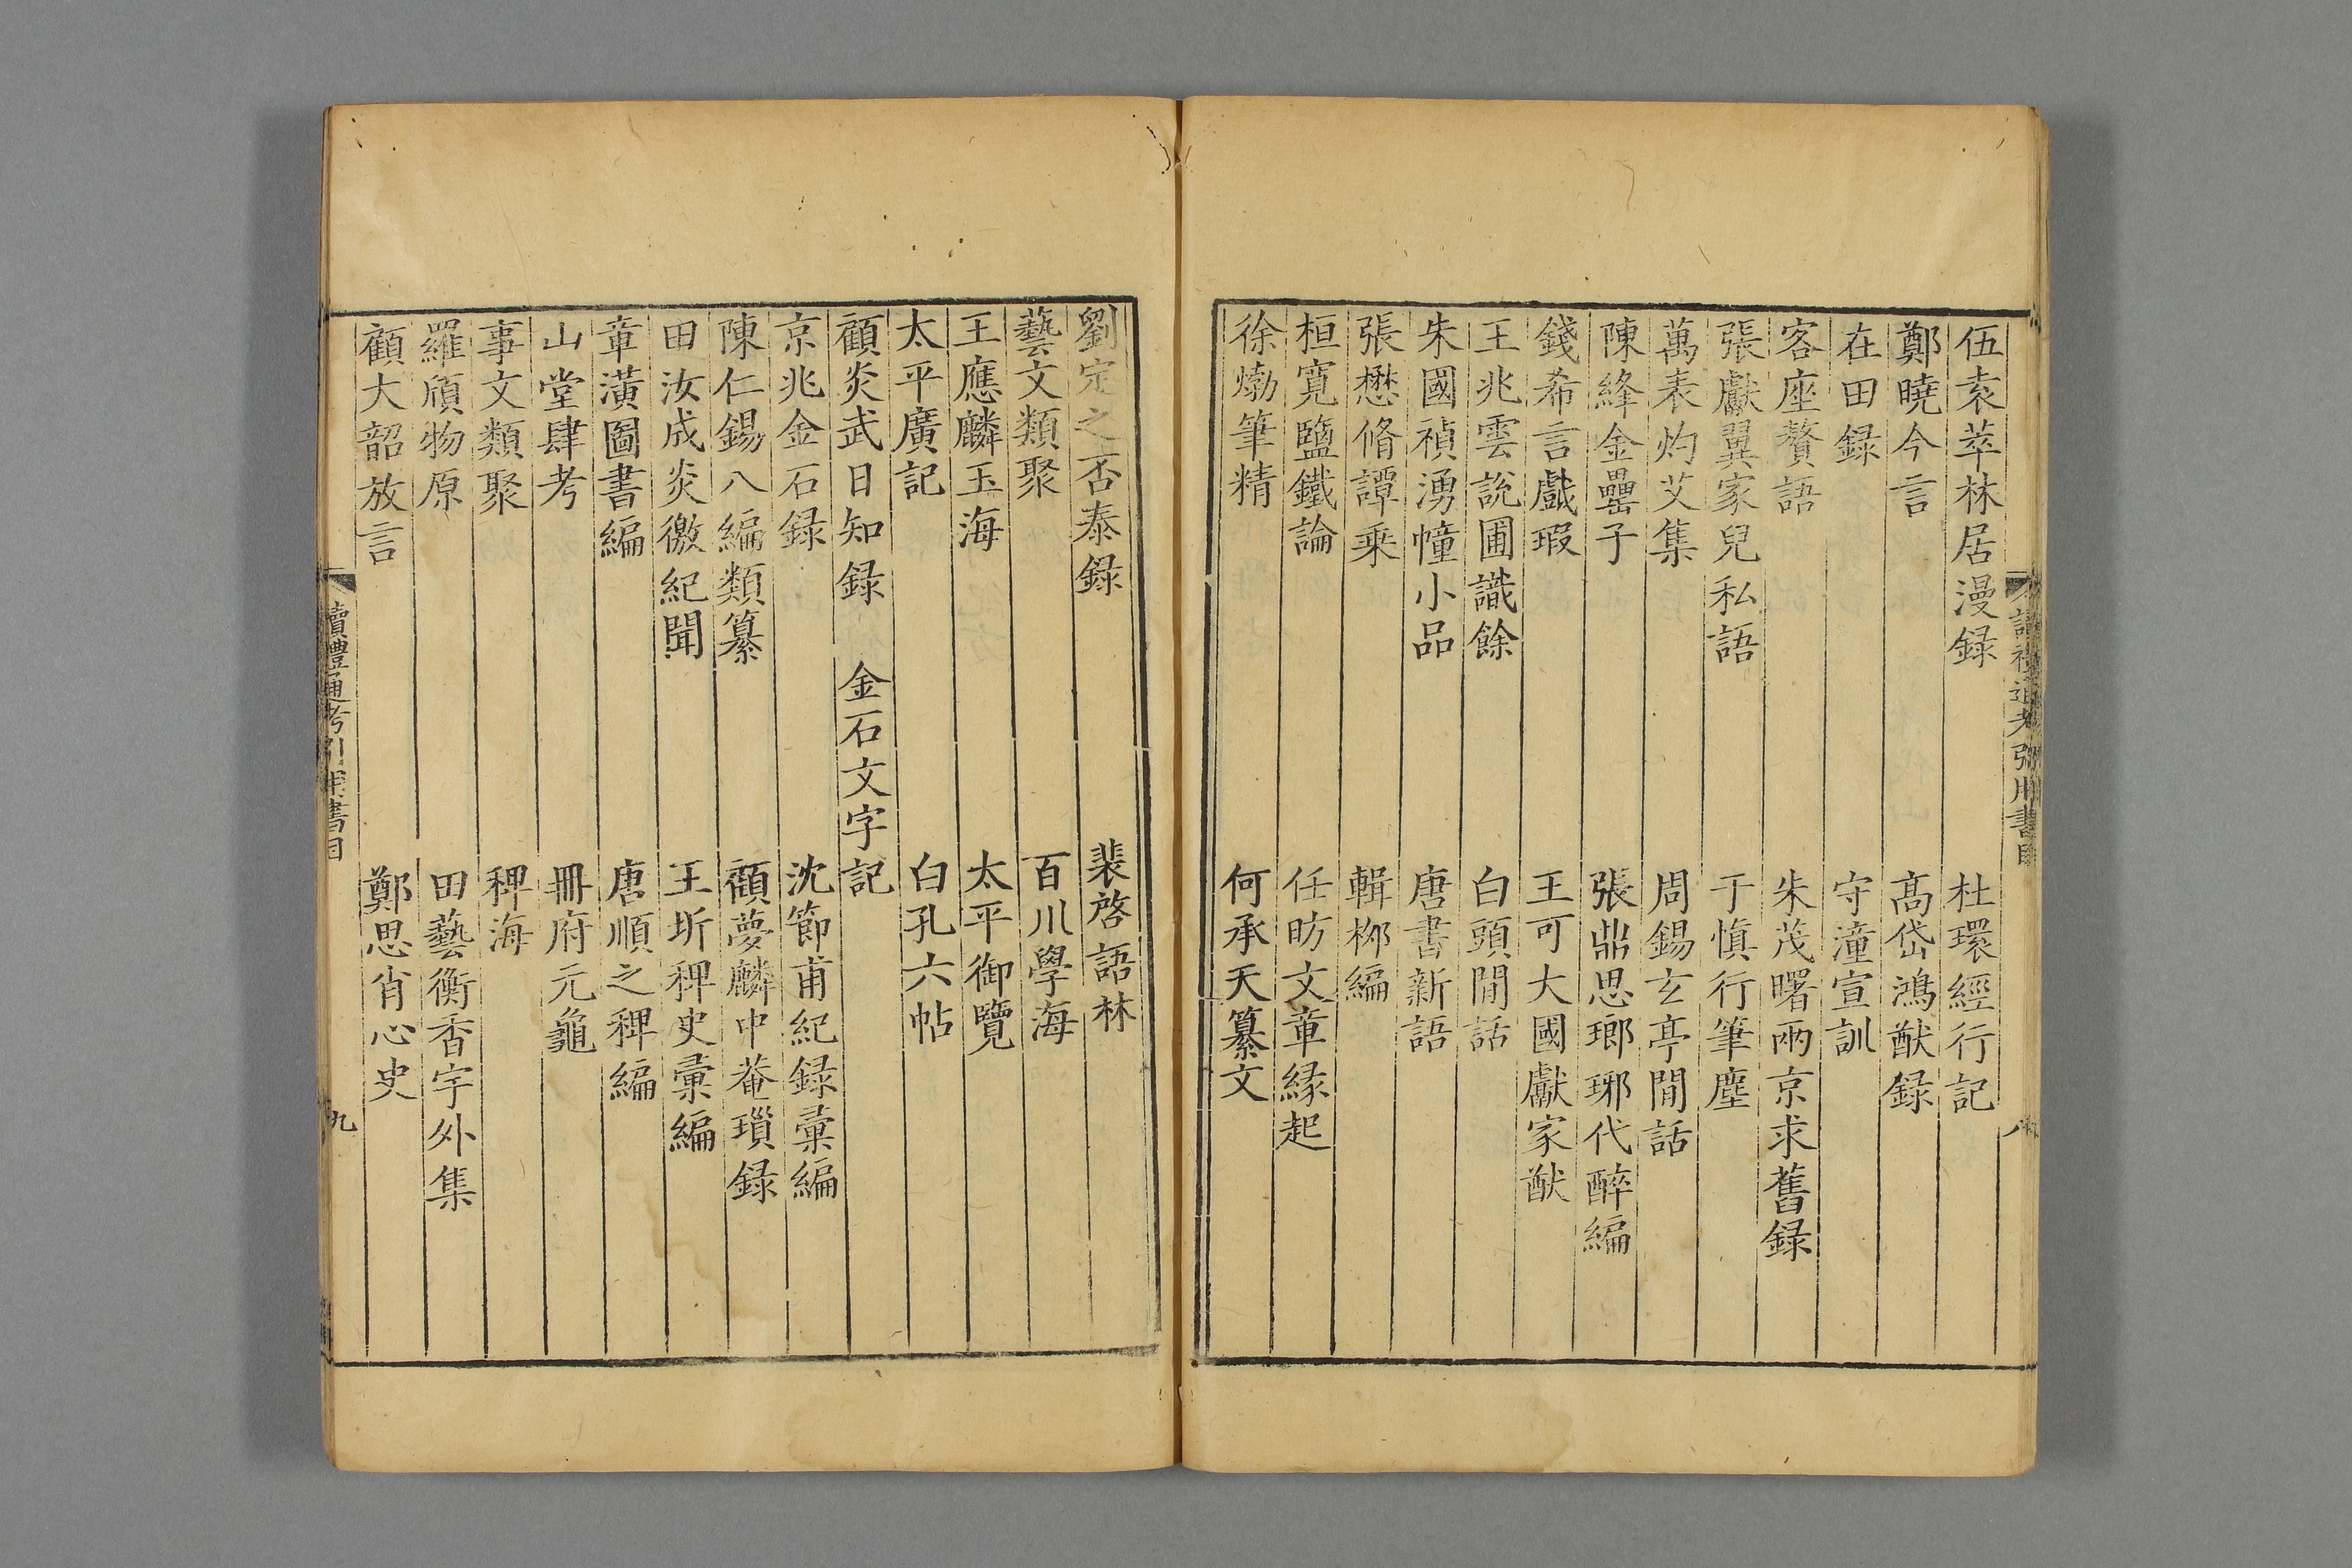 伍袁萃林居漫録　杜環經行記
鄭曉今言　高岱鴻猷録
在田録　守潼宣訓
客座贅語　朱茂曙兩京求舊録
張獻翼家兒私語　于慎行筆塵
萬表灼艾集　周錫玄亭閒話
陳絳金罍子　張鼎思瑯琊代醉編
錢希言戲瑕　王可大國獻家猷
王兆雲說圃識餘　白頭閒話
朱國禎湧幢小品　唐書新語
張懋脩譚乗　輯栁編
桓寬鹽鐵論　任昉文章緣起
徐𤊹筆精　何承天纂文
劉定之否泰録　裴啓語林
藝文類聚　百川學海
王應麟玉海　太平御覽
太平廣記　白孔六帖
顧炎武日知録　金石文字記
京兆金石録　沈節甫紀録彙編
陳仁錫八編類纂　顧夢麟中菴瑣録
田汝成炎徼紀聞　王圻稗史彙編
章潢圖書編　唐順之稗編
山堂肆考　冊府元龜
事文類聚　稗海
羅頎物原　田藝衡香宇外集
顧大韶放言　鄭思肖心史
讀禮通考引用書目　九